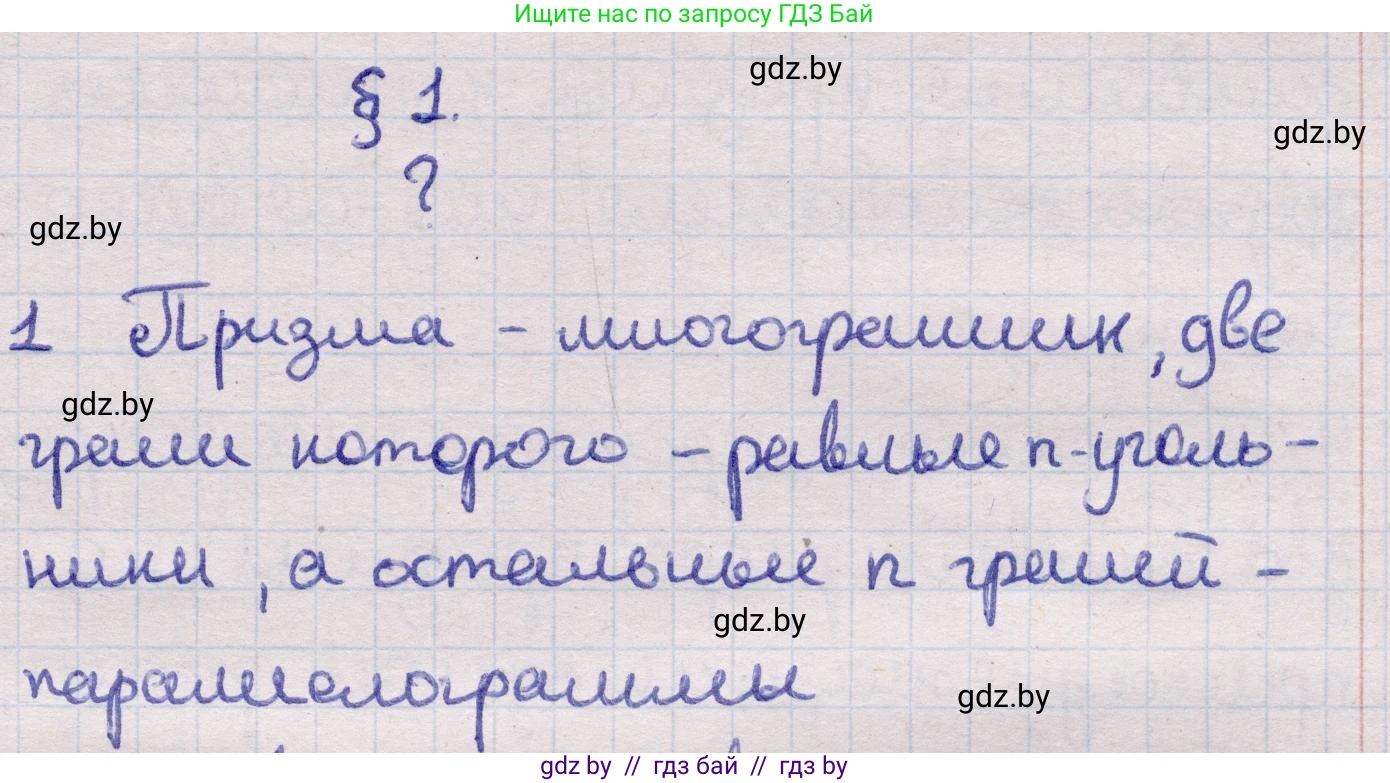 Ищите нас по запросу ГДЗ Бай
gdz.by
§ 1.
gdz.by
?
gdz.by
1 Призма - многогранник, две
gdz.by
грани которого - равные n-уголь-
ники, а остальные n граней -
gdz.by
параллелограммы
gdz.by
gdz by // гдз бай // гдз by